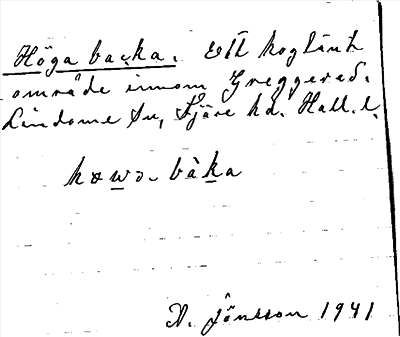 Höga backa. Ett hoglänt
område inom Greggered.
Lindome sn, Fjäre hd. Hall. l.
bàka
A. Jönsson 1941